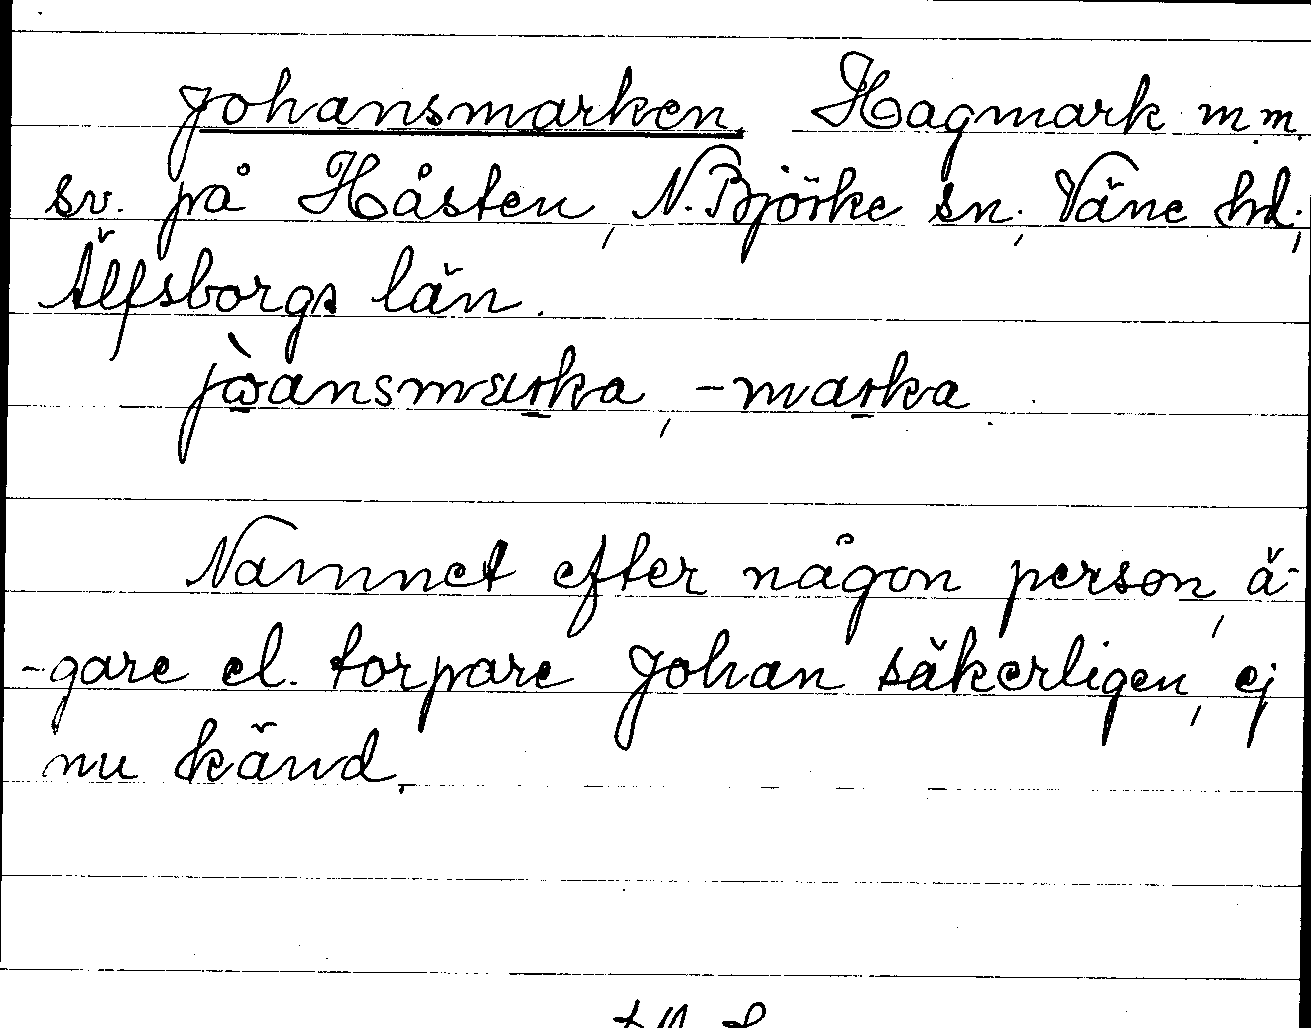 Johansmarken. Hagmark m.m.
sv. på Håsten, N. Björke sn; Väne hd;
Älfsborgs län.
jὼansmarka, -marka.
Namnet efter någon person, ä-
-gare el. torpare Johan säkerligen, ej
nu känd.